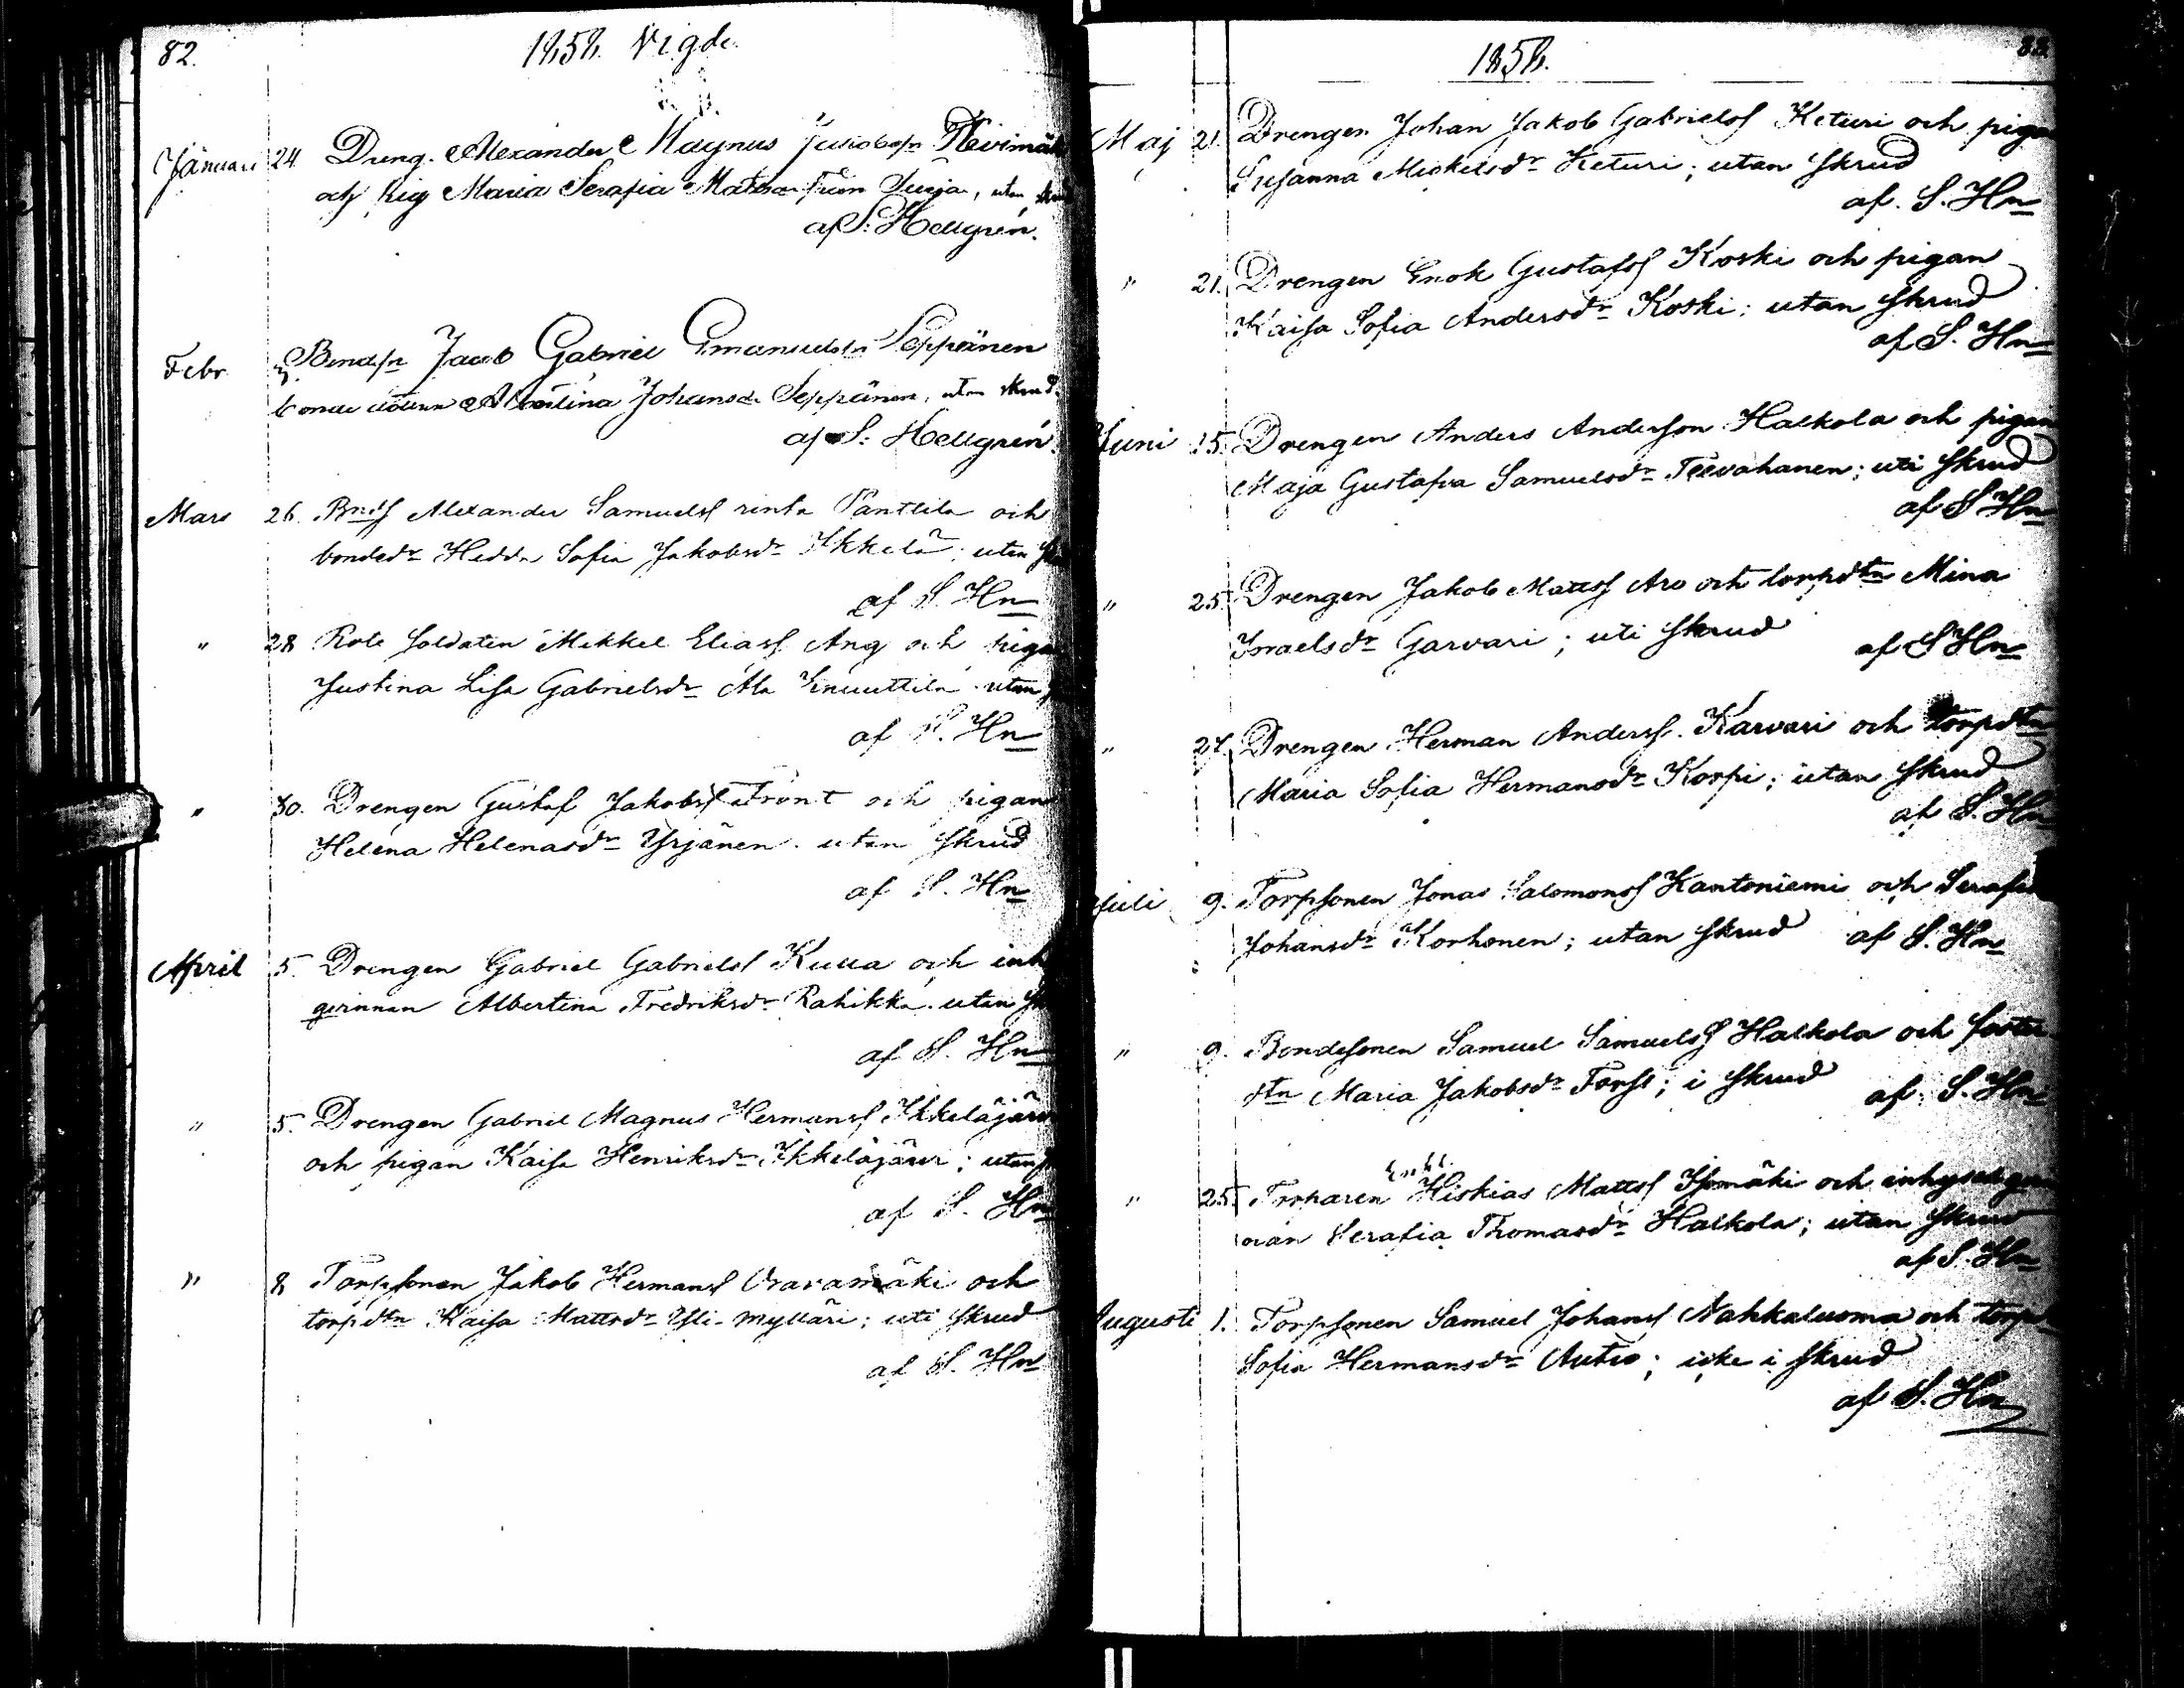 82.
1858. Vigde.
Januari 24. Dreng. Alexander Magnus Jakobsn
och Pig Maria Serafia från, utan
af S: Hellgren.
Febr. Bondesn Jacob Gabriel Emanuelsn Seppänen
bonde dottren Johansdr Seppänen, utan skrud.
af S: Hellgren.
Mars 26. Bndss Alexander Samuelss rinta Panttila och
bondedr Hedda Sofia Jakobsdr Ikkelä; utan
af S. Hn
" 28 Rote Soldaten Mikkel Eliass Äng och pigan
Justina Lisa Gabrielsdr Ala Knuuttila utan
af S. Hn
" 30. Drengen Gustaf Jakobss Front och pigan
Helena Helenasdr Yrjänen utan skrud
af S. Hn
April 5. Drengen Gabriel Gabrielss Kulla och inh
gerinnan Albertina Fredriksdr Rahikka. utan
af S. Hn
" 5. Drengen Gabriel Magnus Hermanss Ikkeläjärvi
och pigan Kaisa Henriksdr Ikkeläjärvi; utan
af S. Hn
" 8 Torpsonen Jakob Hermanss Oravamäki och
torpdtn Kaisa Mattsdr Yli-Mylläri; uti skrud
af S. Hn
1858.
Maj 21. Drengen Johan Jakob Gabrielss Keturi och pigan
Susanna Mickelsdr Keturi; utan skrud
af. S. Hn
" 21. Drengen Enok Gustafss Koski och pigan
Kaisa Sofia Andersdr Koski; utan skrud
af S. Hn
Juni 15. Drengen Anders Anderson Halkola och pigan
Maja Gustafva Samuelsdr Teevahanen; uti skrud
af S Hn
" 25. Drengen Jakob Mattss Aro och torpdtn Mina
Israelsdr Garvari; uti skrud af S Hn
" 27. Drengen Herman Anderss. Karvari och torpdtn
Maria Sofia Hermansdr Korpi; utan skrud
af S. Hn
Juli 9. Torpsonen Jonas Salomonss Kantoniemi och Serafia
Johansdr Korhonen; utan skrud af S. Hn
" 9. Bondesonen Samuel Samuelss Halkola och foster
dtn Maria Jakobsdr Forss; i skrud af S. Hn
Enkl.
" 25. Hiskias Mattss Isomäki och
Serafia Thomasdr Halkola; utan skrud
af S. Hn
Augusti 1. Torpsonen Samuel Johanss Nahkaluoma och torp
Sofia Hermansdr Autio; icke i skrud
af S. Hn